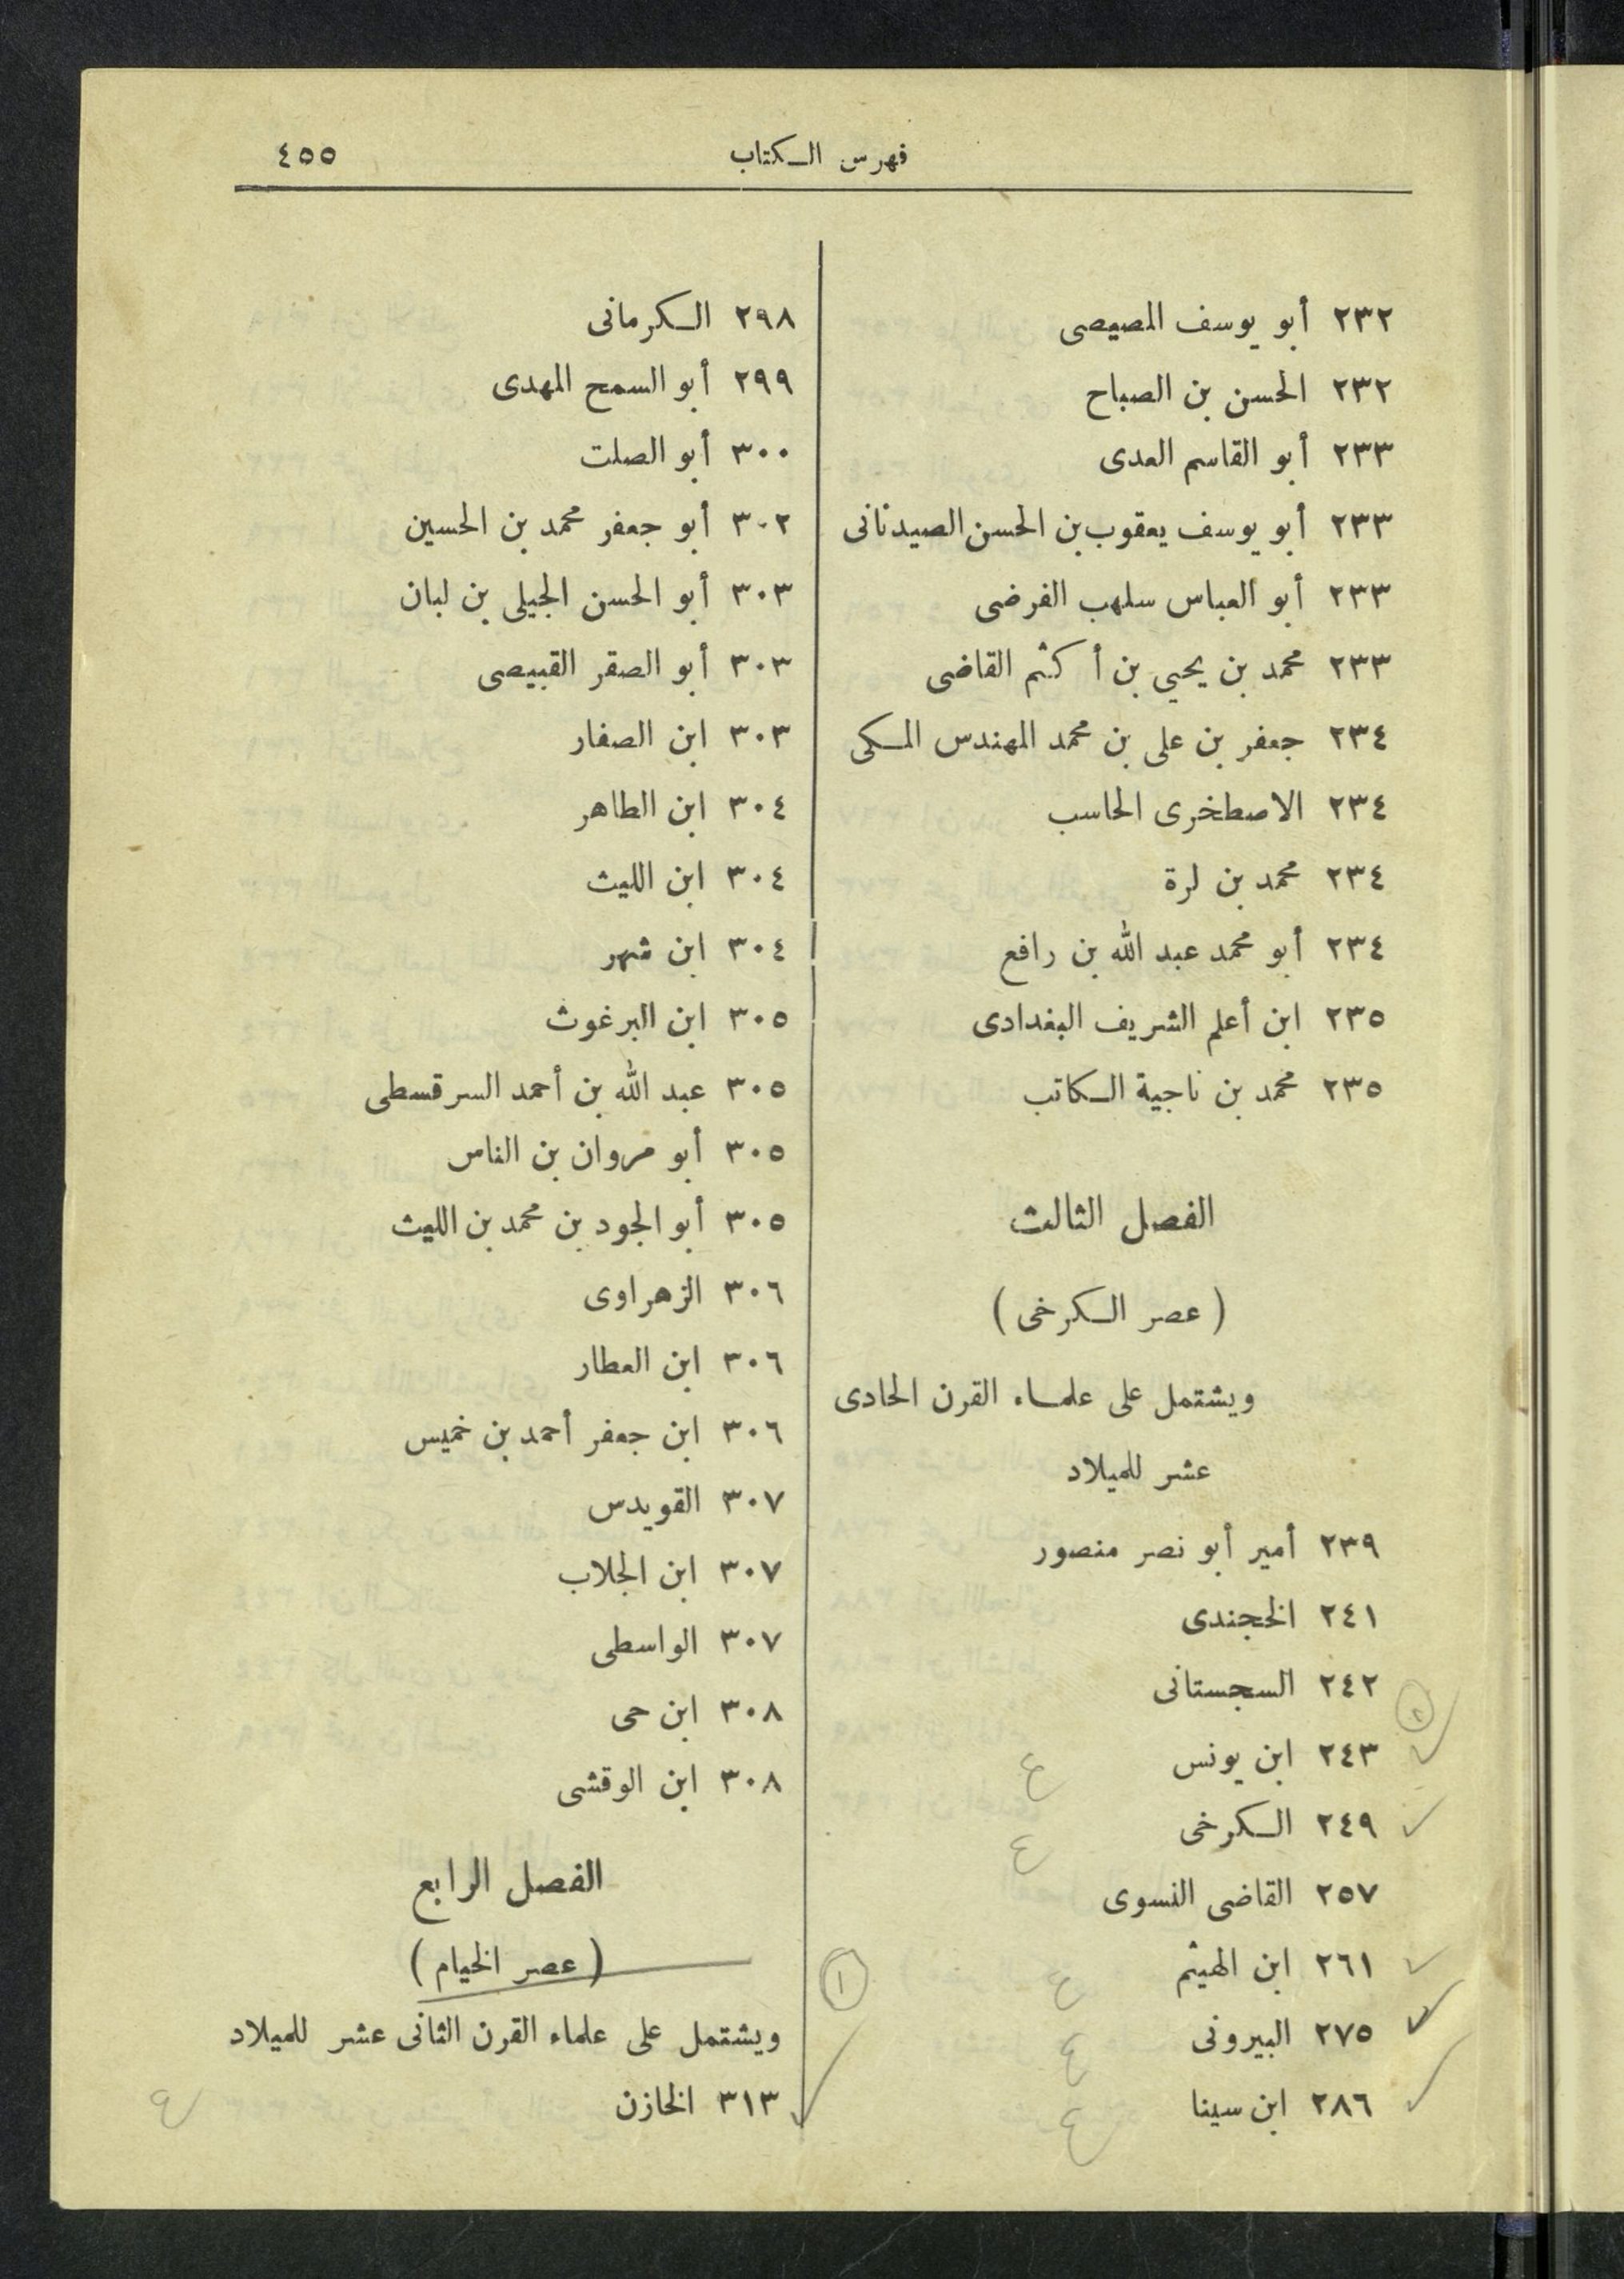 فهرس الكتاب ٤٥٥
٢٣٢ أبو يوسف المصيصى
٢٣٢ الحسن بن الصباح
٢٣٣ أبو القاسم العدى
٢٣٣ أبو يوسف يعقوب بن الحسن الصيدنانى
٢٣٣ أبو العباس سلهب الفرضى
٢٣٣ محمد بن يحيى بن أكثم القاضى
٢٣٤ جعفر بن على بن محمد المهندس المكى
٢٣٤ الاصطخرى الحاسب
٢٣٤ محمد بن لرة
٢٣٤ أبو محمد عبد الله بن رافع
٢٣٥ ابن أعلم الشريف البغدادى
٢٣٥ محمد بن ناجية الكاتب
الفصل الثالث
(عصر الكرخى)
ويشتمل على علماء القرن الحادى
عشر للميلاد
٢٣٩ أمير أبو نصر منصور
٢٤١ الخجندى
٢٤٢ السجستانى
٢٤٣ ابن يونس ع
٢٤٩ الكرخى ع
٢٥٧ القاضى النسوى
٢٦١ ابن الهيثم ع
٢٧٥ البيرونى ع
٢٨٦ ابن سينا ع
٢٩٨ الكرمانى
٢٩٩ أبو السمح المهدى
٣٠٠ أبو الصلت
٣٠٢ أبو جعفر محمد بن الحسين
٣٠٣ أبو الحسن الجيلى بن لبان
٣٠٣ أبو الصقر القبيصى
٣٠٣ ابن الصفار
٣٠٤ ابن الطاهر
٣٠٤ ابن الليث
٣٠٤ ابن شهر
٣٠٥ ابن البرغوث
٣٠٥ عبد الله بن أحمد السرقسطى
٣٠٥ أبو مروان بن الناس
٣٠٥ أبو الجود بن محمد بن الليث
٣٠٦ الزهراوى
٣٠٦ ابن العطار
٣٠٦ ابن جعفر أحمد بن خميس
٣٠٧ القويدس
٣٠٧ ابن الجلاب
٣٠٧ الواسطى
٣٠٨ ابن حى
٣٠٨ ابن الوقشى
الفصل الرابع
(عصر الخيام)
١
ويشتمل على علماء القرن الثانى عشر للميلاد
٣١٣ الخازن ع